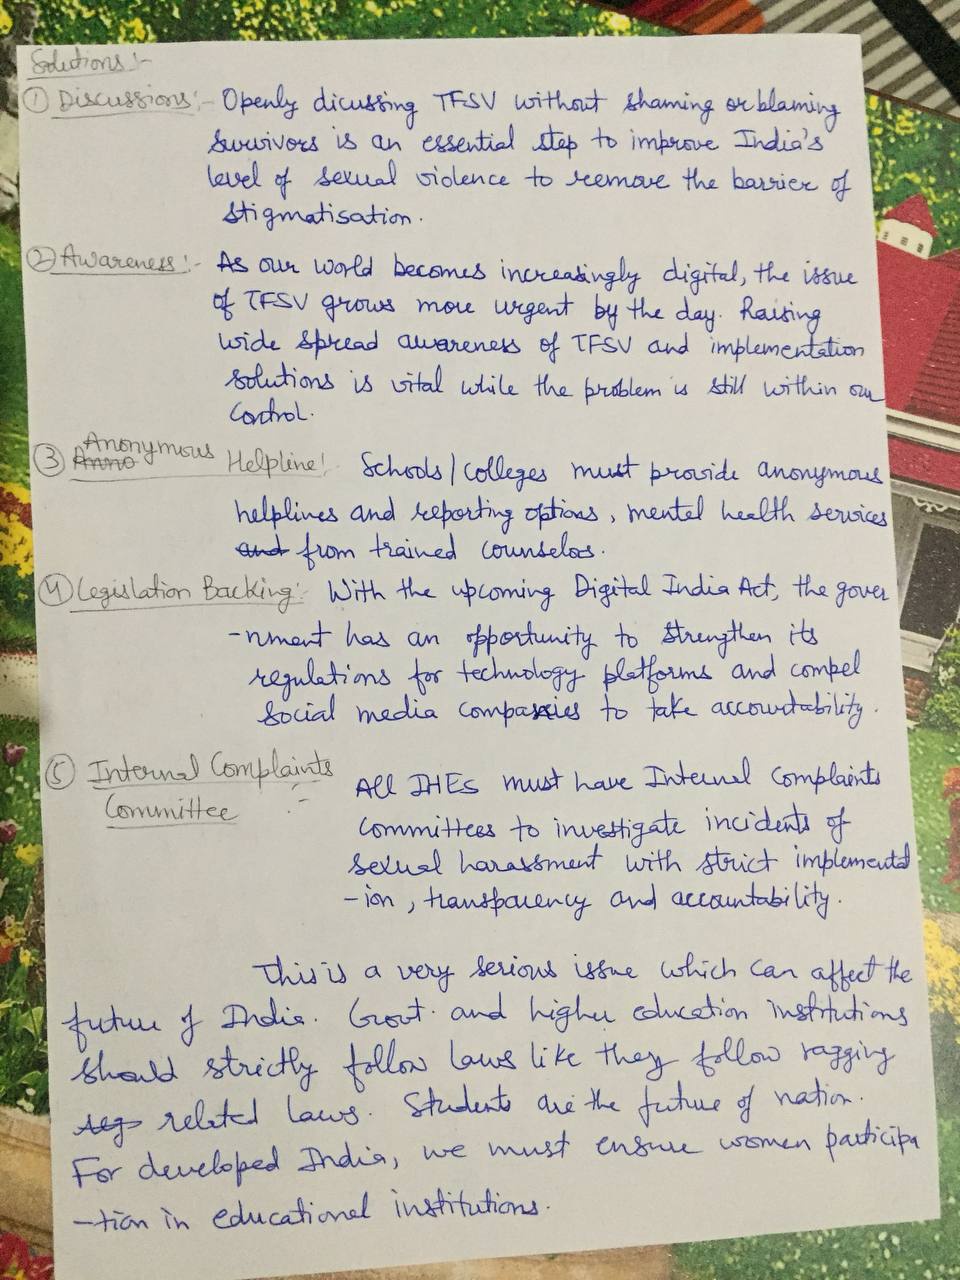 Solutions :-
① Discussions :- Openly dicussing TFSV without shaming or blaming
survivors is an essential step to improve India's
level of sexual violence to remove the barrier of
stigmatisation.
② Awareness :- As our world becomes increasingly digital, the issue
of TFSV grows more urgent by the day. Raising
wide spread awareness of TFSV and implementation
solutions is vital while the problem is still within our
control.
③ Anonymous Helpline! Schools/colleges must provide anonymous
helplines and reporting options, mental health services
from trained counselos.
④ Legislation Backing :- With the upcoming Digital India Act, the gover
-nment has an opportunity to strengthen its
regulations for technology platforms and compel
social media companies to take accountability.
⑤ Internal Complaints
Committee :- All IHEs must have Internal Complaints
Committees to investigate incidents of
sexual harassment with strict implementat
-ion, transparency and accountability.
This is a very serious issue which can affect the
future of India. Govt. and higher education institutions
should strictly follow laws like they follow ragging
related laws. Students are the future of nation.
For developed India, we must ensure women participa
-tion in educational institutions.